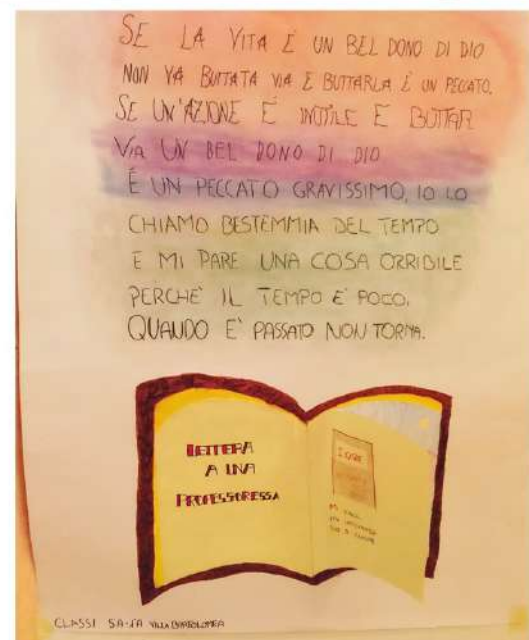 SE LA VITA È UN BEL DONO DI DIO
NON VA BUTTATA VIA E BUTTARLA È UN PECCATO.
SE UN'AZIONE È INUTILE E BUTTAR
VIA UN BEL DONO DI DIO
È UN PECCATO GRAVISSIMO, IO LO
CHIAMO BESTEMMIA DEL TEMPO
E MI PARE UNA COSA ORRIBILE
PERCHÈ IL TEMPO E' POCO,
QUANDO E' PASSATO NON TORNA.
LETTERA
A UNA
PROFESSORESSA
I CARE
CLASSI 5A-1A VILLA BARTOLOMEA